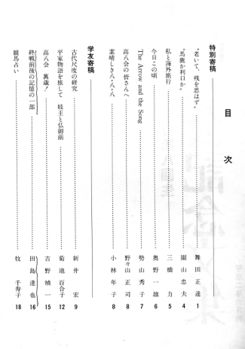 目次
特別寄稿
"老いて、残を思はず" 舞田正達 1
"馬鹿が利口か" 園山忠夫 4
私と海外旅行 三橋力 5
今日この頃 奥野一雄 6
The Arrow and the Song 勢山秀子 7
高八会の皆さんへ 野々山正司 8
素晴しき八・八・八 小林年子 8
学友寄稿
古代尺度の研究 新井宏 9
平家物語を旅して 妓王と仏御前 菊池百合子 12
高八会 萬歳! 吉野晴一 15
終戦前後の記憶の一部 田島達也 16
競馬占い 牧千寿子 18